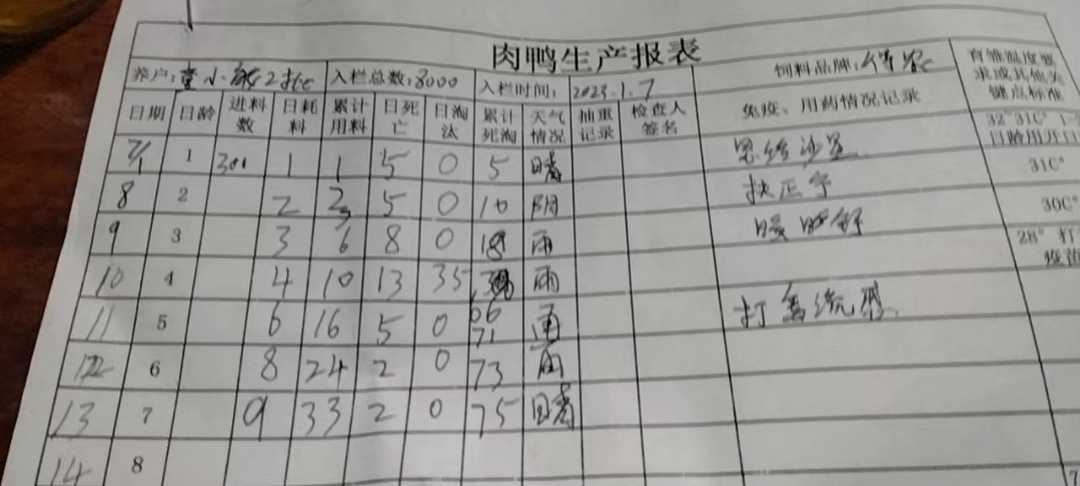 肉鸭生产报表
养户: 小 入栏总数:8000 入栏时间: 2023.1.7 饲料品牌: 育雏温度要求或其他关键点标准
日期 日龄 进料数 日耗料 累计用料 日死亡 日淘汰 累计死淘 天气情况 抽重记录 检查人签名 免疫、用药情况记录
7/1 1 300 1 1 5 0 5 晴 32°31C° 1-3日龄用开口
8 2 2 3 5 0 10 阴 扶正 31C°
9 3 3 6 8 0 18 雨 30C°
10 4 4 10 13 35 雨 28° 打疫苗
11 5 6 16 5 0 66 71 打 流
12 6 8 24 2 0 73 雨
13 7 9 33 2 0 75 晴
14 8